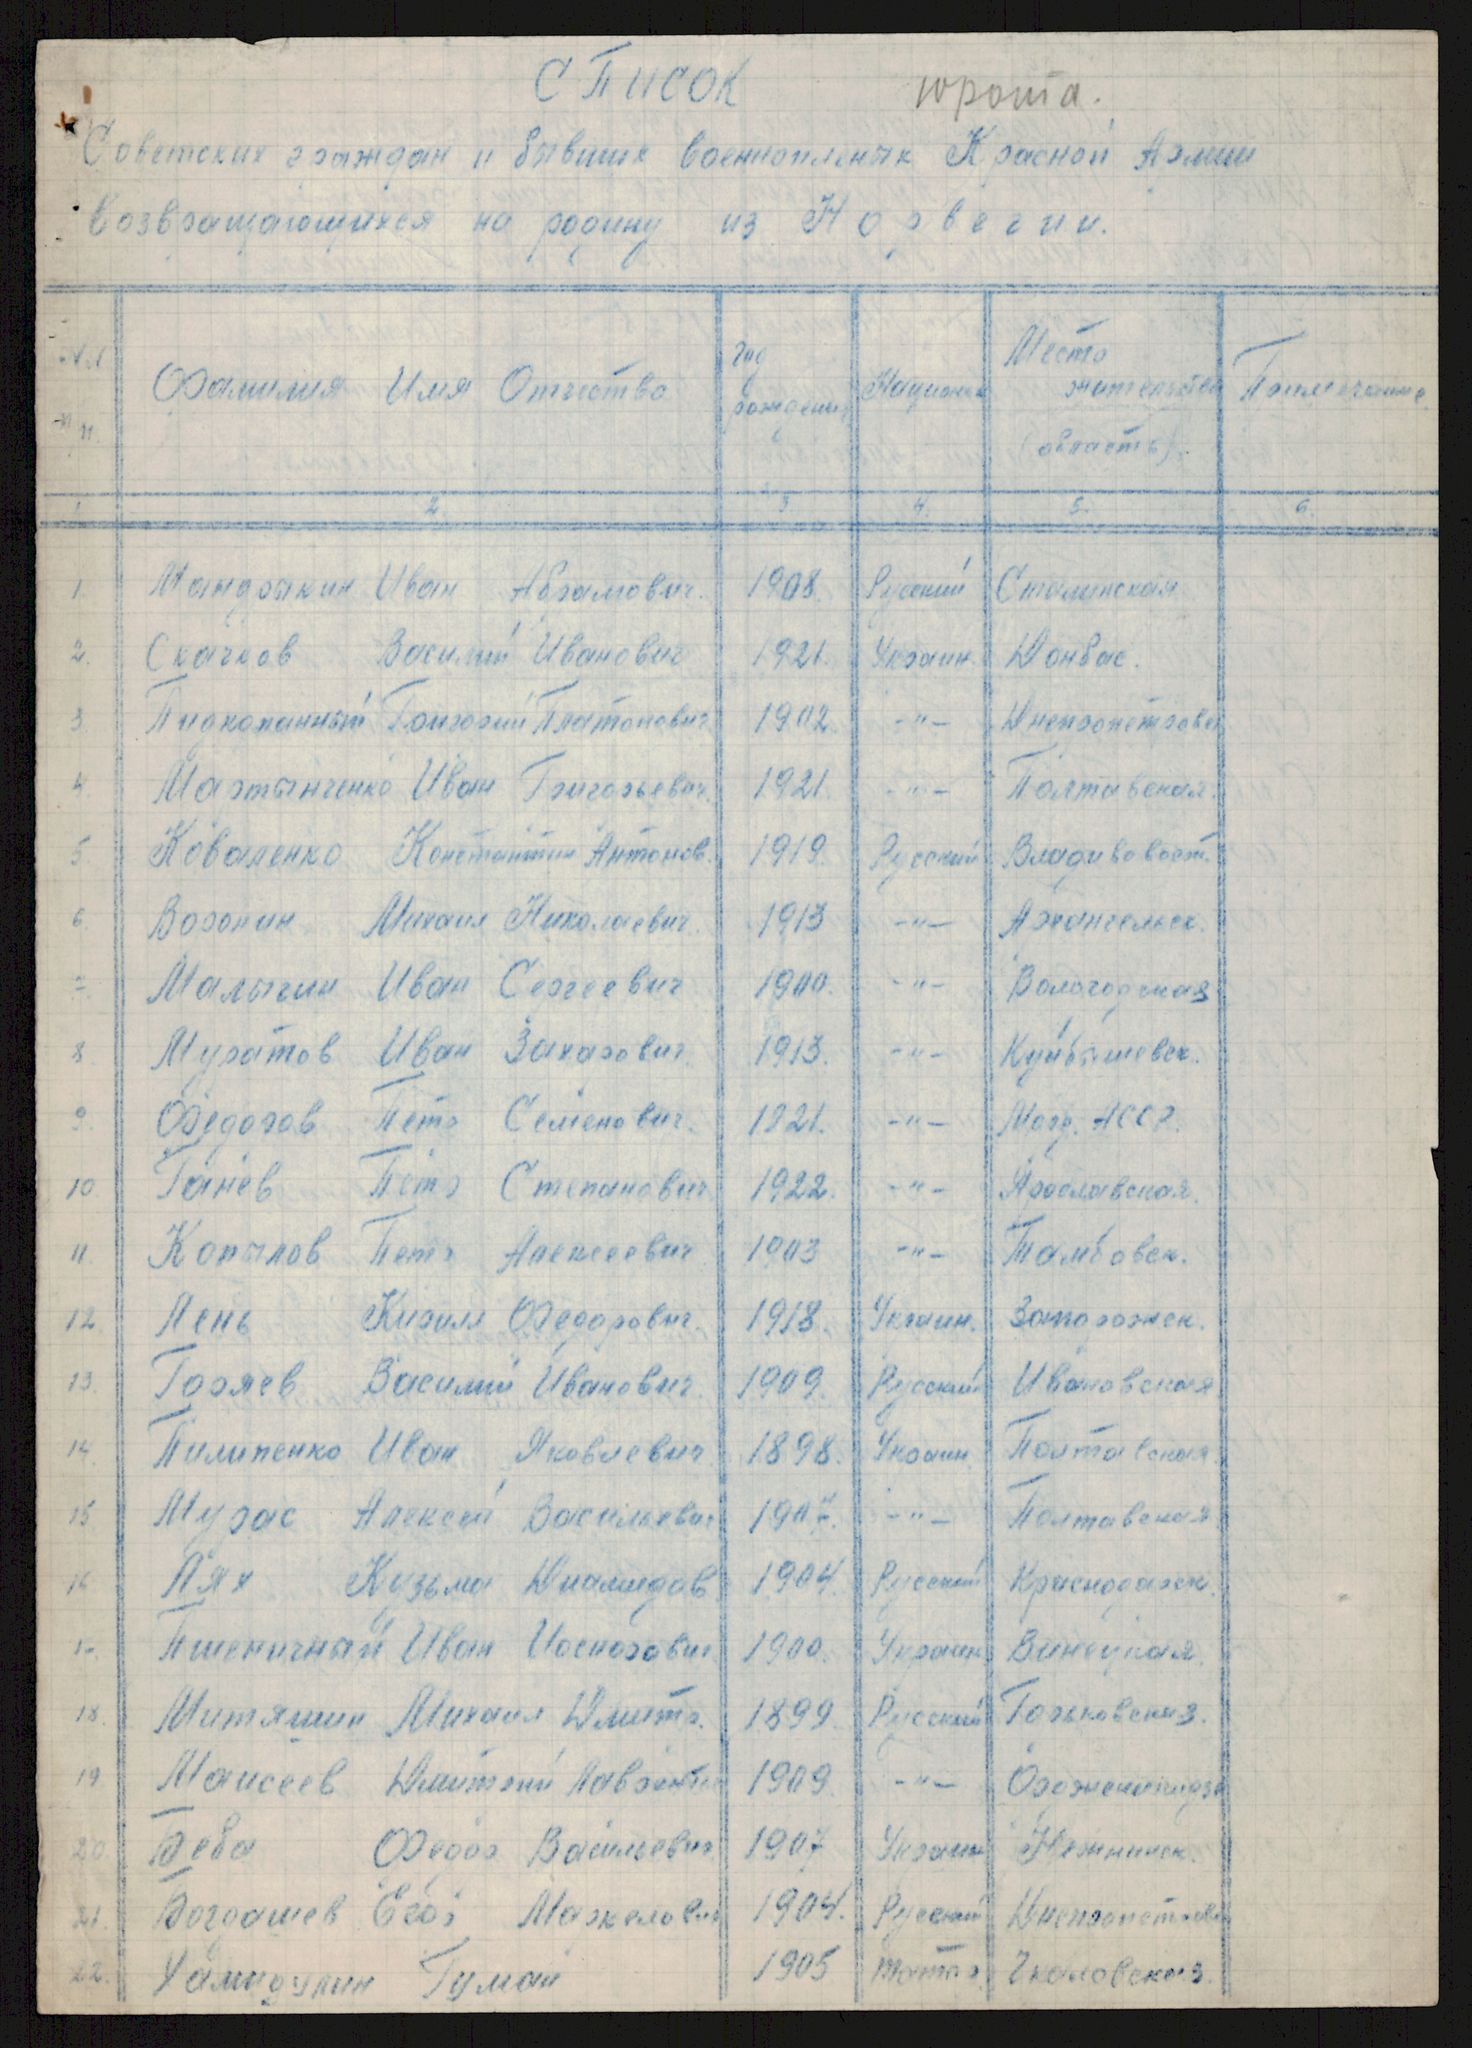 СПИСОК юрота.
Советских граждан и бывших военнопленых Красной Армии
возвращающихся на родину из Норвегии.
Фамилия Имя Отчество Год рождения Национал Место жительства (область). Примечание
1 2 3 4. 5. 6.
1 Мандрыкин Иван Абрамович. 1908. Русский Сталинская
2. Скачков Василий Иванович 1921. Украин. Донбас.
3 Пидкопанный Григорий Платонович 1902. -"- Днепропетровс
4 Мартынченко Иван Григорьевич. 1921. -"- Полтавская.
5 Коваленко Константин Антонов. 1919. Русский Владивовост.
6 Воронин Михаил Николаевич. 1913 -"- Архангельск.
7 Малыгин Иван Сергеевич 1900. -"- Вологодская
8 Муратов Иван Захарович. 1913. -"- Куйбышевск.
9. Федоров Петр Семенович. 1921. -"- Морд. АССР.
10 Ганев Петр Степанович 1922. -"- Ярославская.
11. Копылов Петр Алексеевич 1903 -"- Тамбовск.
12. Лень Кирилл Федорович. 1918. Украин. Запорожск.
13. Горяев Василий Иванович 1909. Русский Ивановская
14. Пилипенко Иван Яковлевич 1898. Украин. Полтавская.
15 Мурас Алексей Васильевич 1907. -"- Полтавская
16 Лях Кузьма Диамидов. 1904. Русский Краснодарск.
17 Пшеничный Иван Иоспович 1900. Украин. Винецкая.
18. Митяшин Михаил Дмитр. 1899. Русский Горьковская.
19 Маисеев Дмитрий Лаврентьи 1909. -"- Орджоникидзе
20. Беба Федор Васильевич 1907 Украин Нежнинск.
21. Богдашев Егор Маркелович 1904. Русский Днепропетровс
22. Хамидулин Гумай 1905 татар Чкаловская.